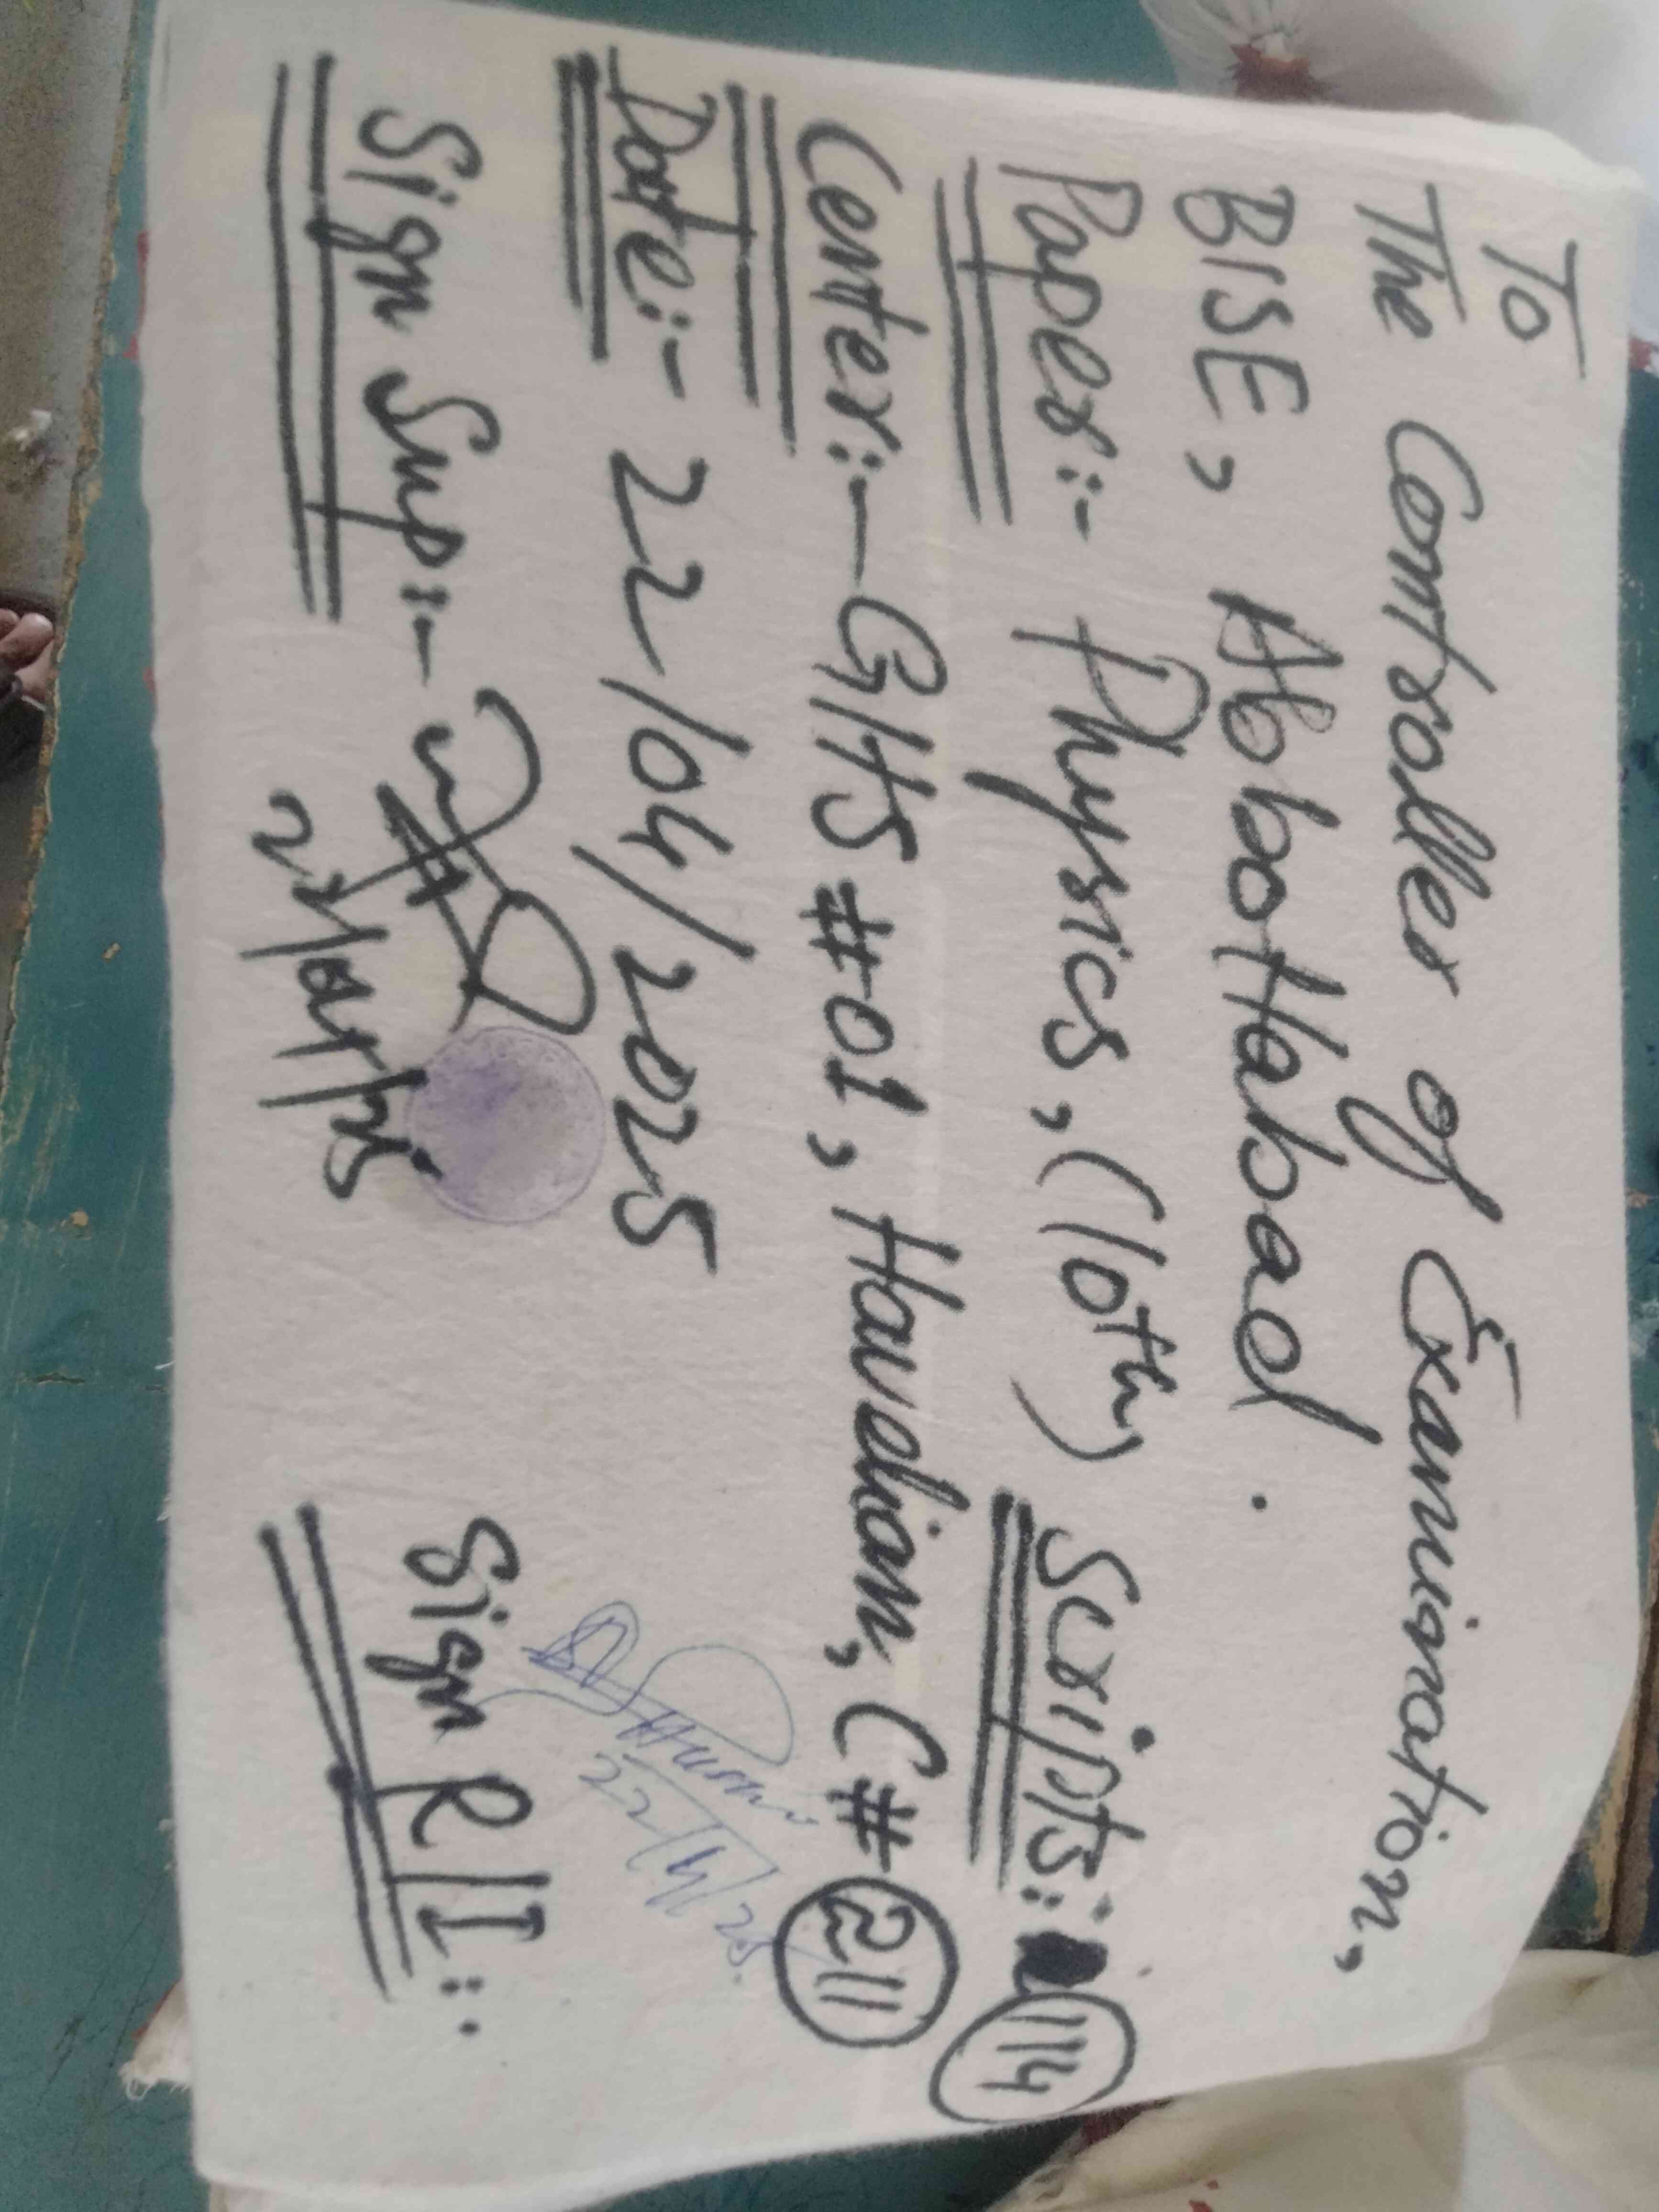 To
The Controller of Examination,
BISE, Abbottabad.
Paper:- Physics, (10th) Scripts:- 114
Center:- GHS #01, Havelian, C# 211
Date:- 22/04/2025
Sign Sup:-
22/04/25
Sign R/I:-
22/4/25.